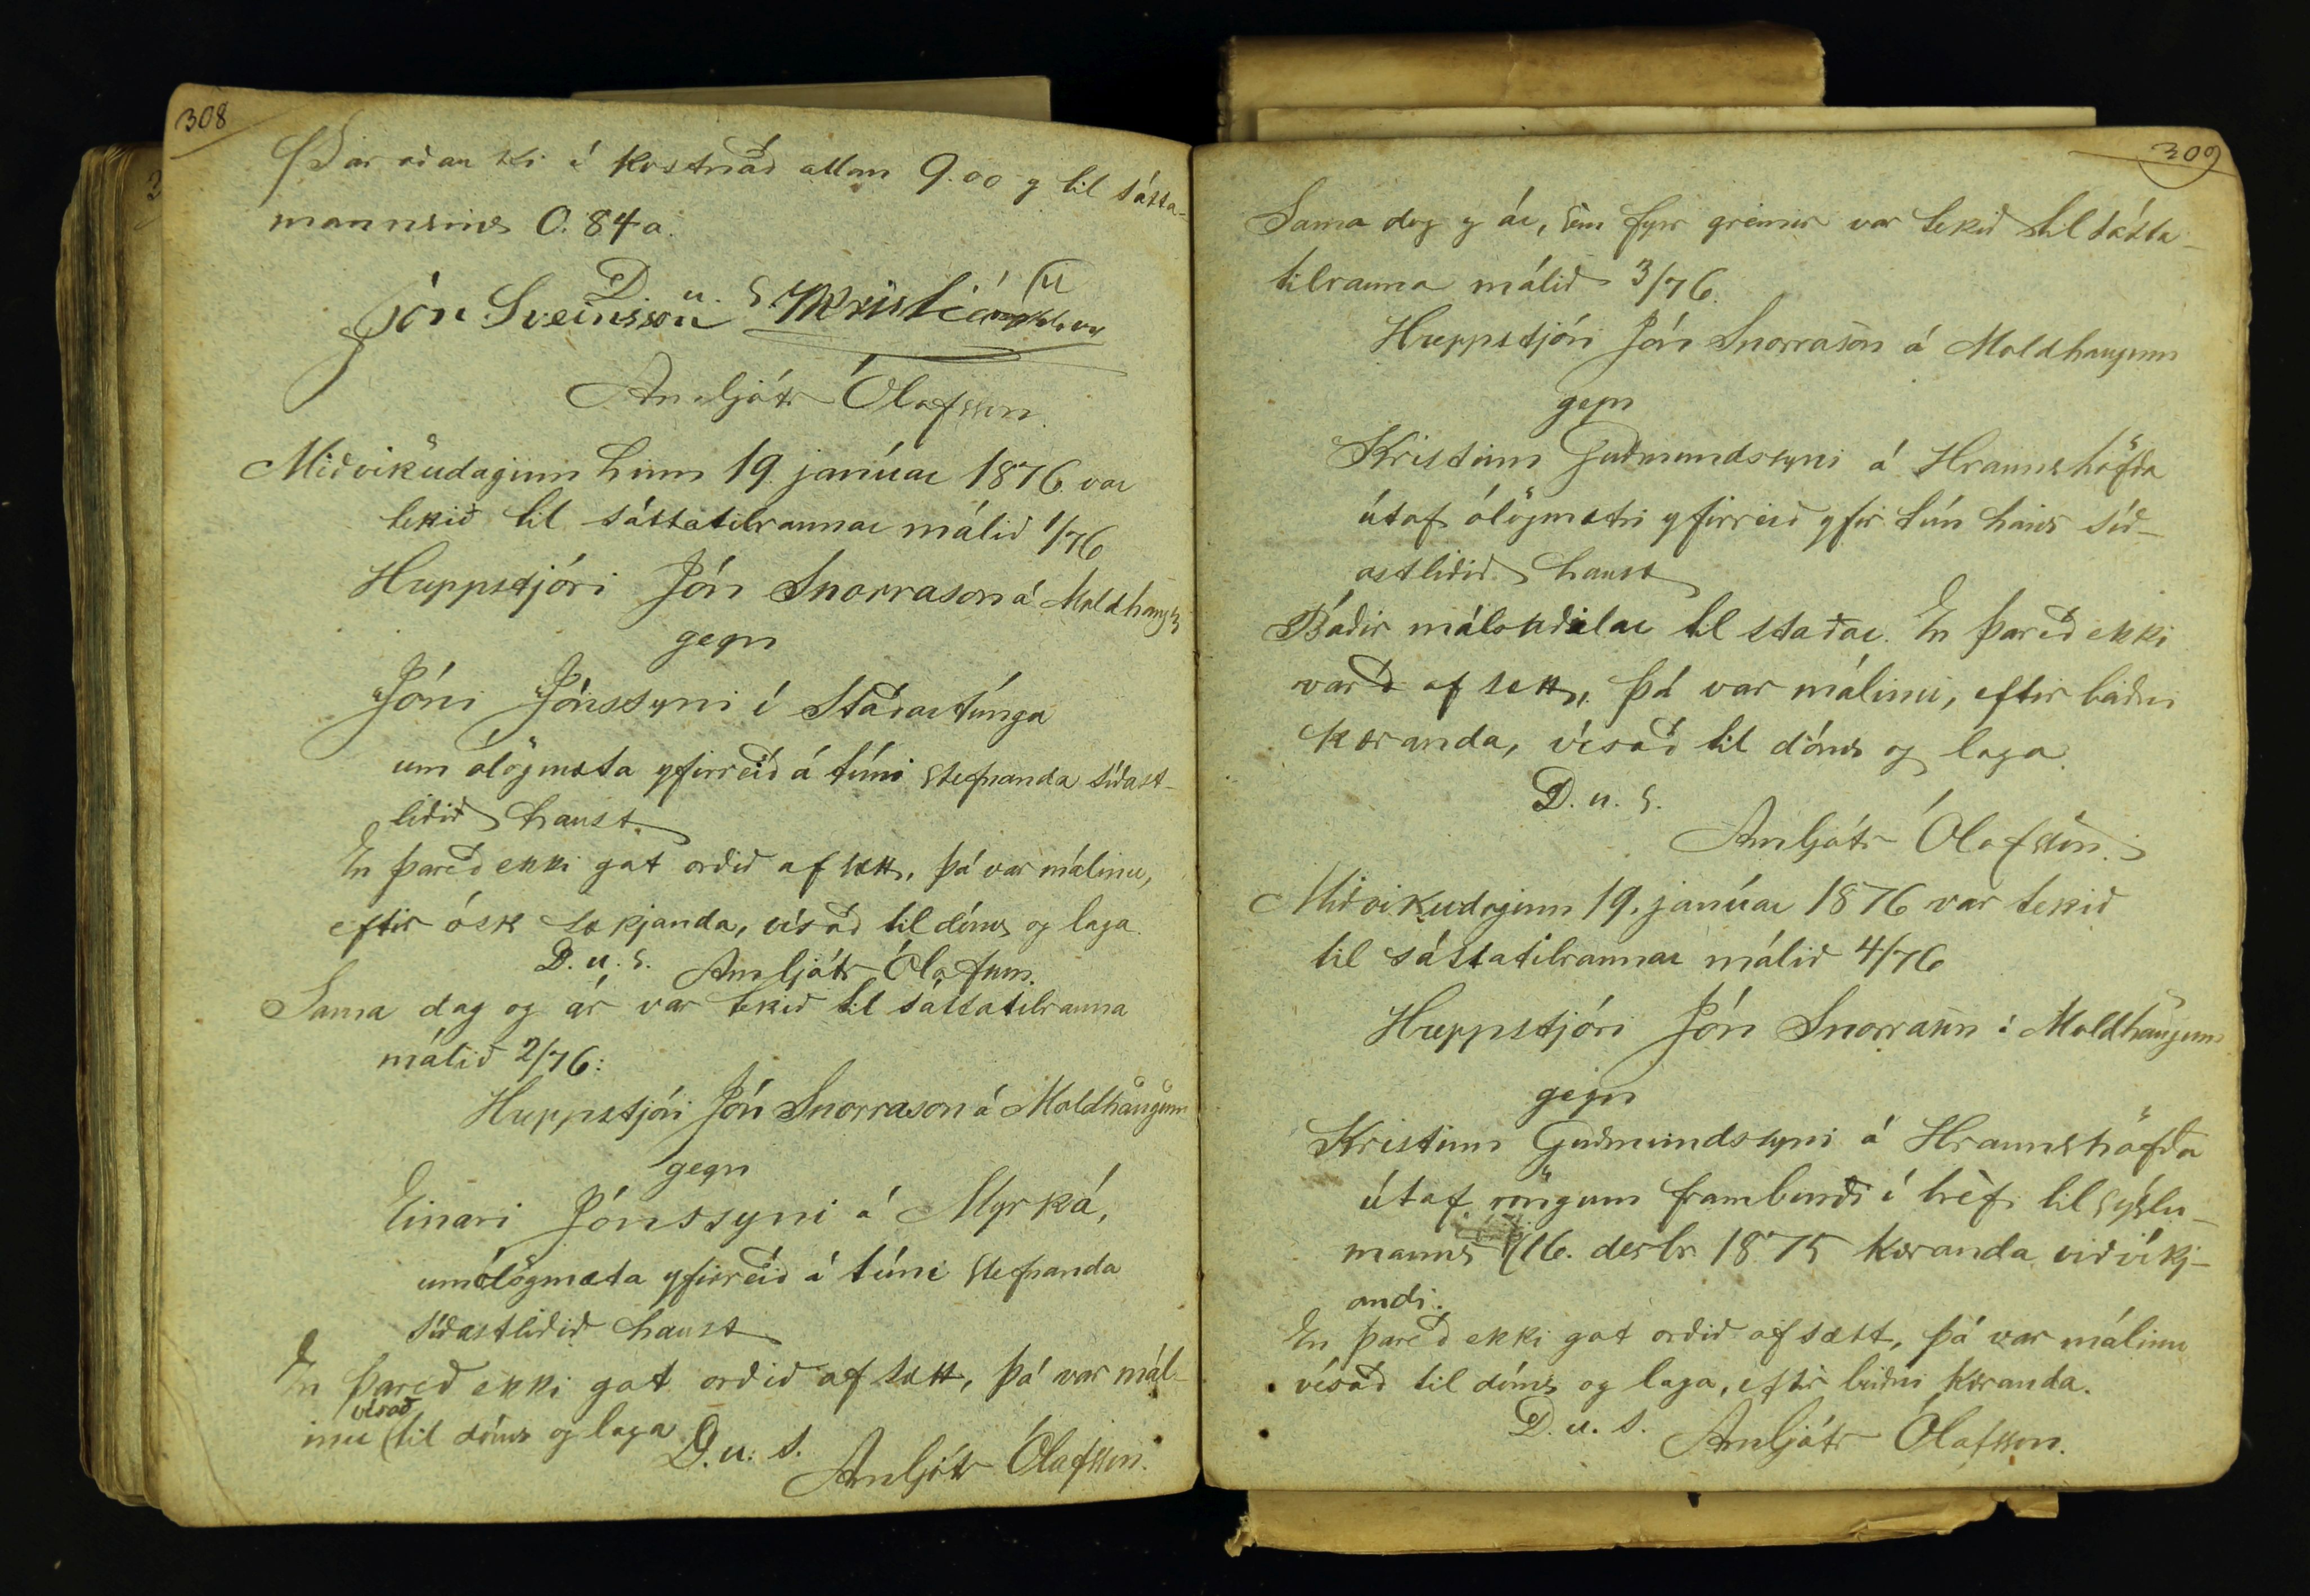 308
Þar að au ki í kostnað allan 9.00 g til sátta-
mannsins 0.84 a.
D. u. s.
Jón Sveinsson Kristián
Arnljótr Ólafsson.
Miðvikudaginn hinn 19. janúar 1876 var
tekið til sáttatilraunar málið 1/76
Hreppstjóri Jón Snorrason á Moldhaug
gegn
Jóni Jónssyni í Staðartúnga
um ólögmæta yfirreið á túni stefnanda síðast-
liðið haust.
En þareð ekki gat orðið af sætt, þá var málinu,
eftir ósk sækjanda, vísað til dóms og laga.
D. u. s. Arnljótr Ólafsson.
Sama dag og ár var tekið til sáttatilrauna
málið 2/76:
Hreppstjóri Jón Snorrason á Moldhaugum
gegn
Einari Jónssyni á Myrká,
um ólögmæta yfirreið á túni stefnanda
síðastliðið haust
En þareð ekki gat orðið af sætt, þá var mál-
inu vísað til dóms og laga
D. u. s. Arnljótr Ólafsson.
309
Sama dag g ár, sem fyrr greinir var tekið til sátta-
tilrauna málið 3/76.
Hreppstjóri Jón Snorrason á Moldhaugum
gegn
Kristinn Guðmundssyni á Hraunshöfða
útaf ólögmætri yfirreið yfir tún hans síð-
astliðið haust
Báðir málspartar til staðar. En þareð ekki
varð af sætt, þá var málinu, eftir beiðni
kæranda, vísað til dóms og laga.
D. u. s.
Arnljótr Ólafsson.
Miðvikudaginn 19. janúar 1876 var tekið
til sáttatilraunar málið 4/76
Hreppstjóri Jón Snorrason á Moldhaugum
gegn
Kristinn Guðmundssyni á Hraunshöfða
útaf röngum framburði í bréfi til sýslu-
manns 16. desbr 1875 kæranda viðvíkj-
andi.
En þareð ekki gat orðið af sætt, þá var málinu
vísað til dóms og laga, eftir beiðni kæranda.
D. u. s. Arnljótr Ólafsson.